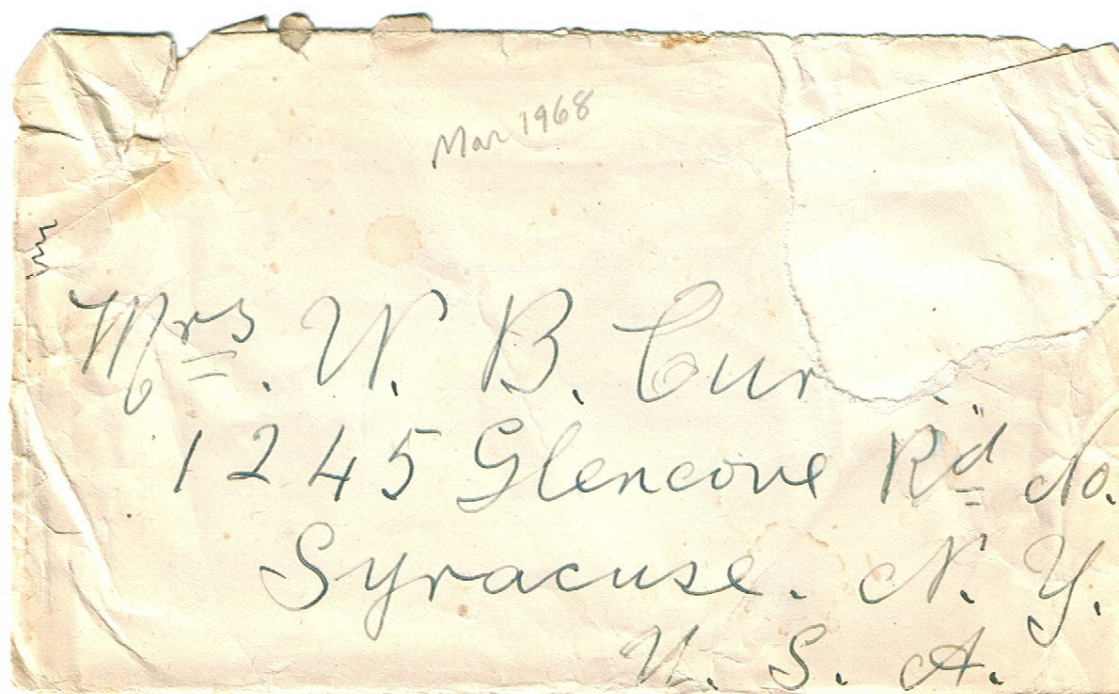 Mar 1968
Mrs. W. B. Cur
1245 Glencove Rd No.
Syracuse. N. Y.
U. S. A.